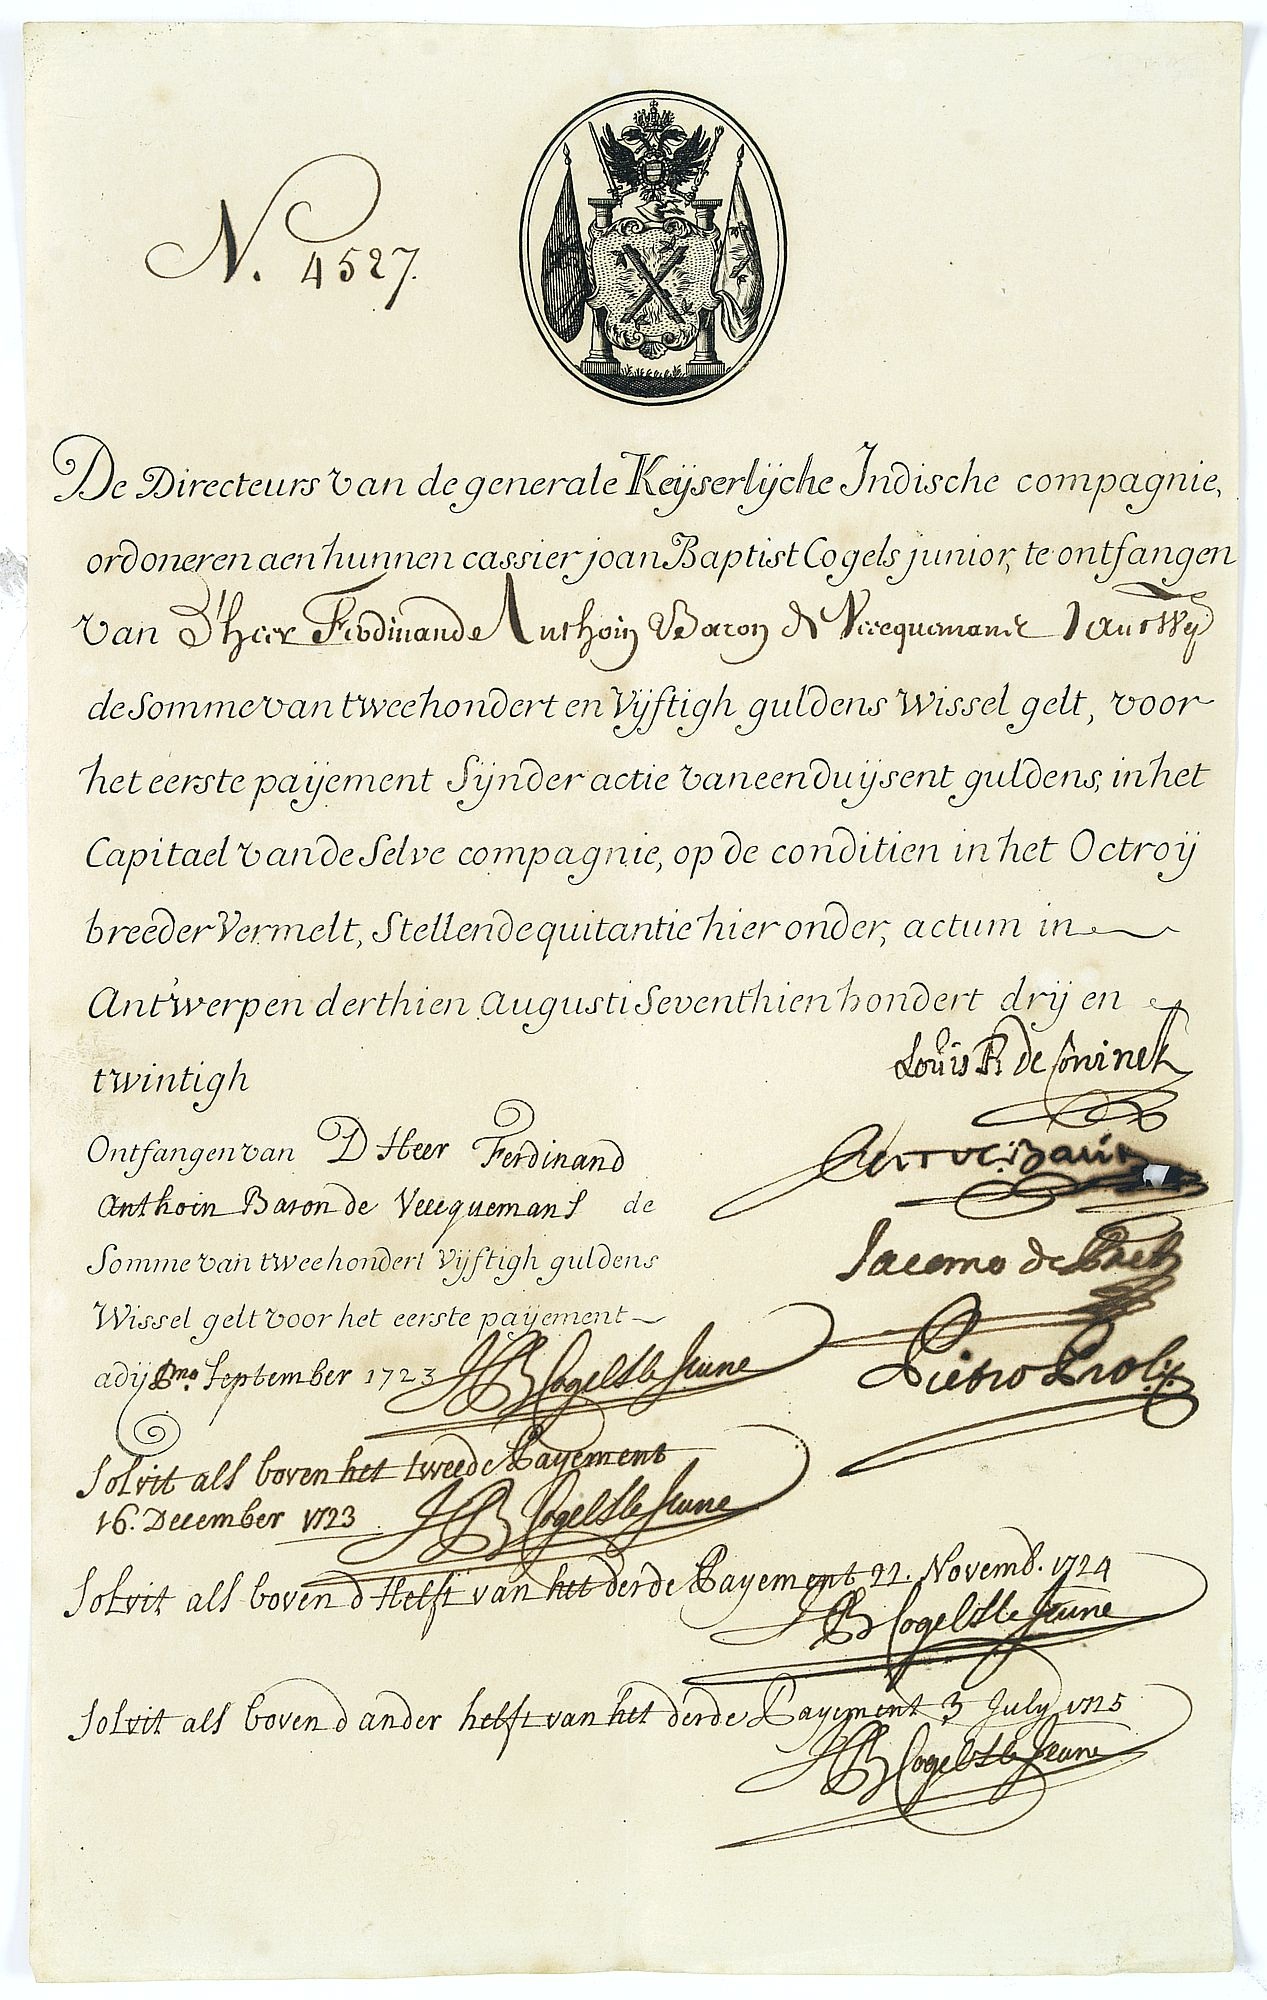 N. 4527.
De Directeurs van de generale Keijserlijche Indische compagnie,
ordoneren aen hunnen cassier joan Baptist Cogels junior, te ontfangen
van D'heer Ferdinande Anthoin Baron de Vecquemans
de Somme van tweehondert en Vijftigh guldens Wissel gelt, voor
het eerste paijement Sijnder actie van een duijsent guldens, in het
Capitael van de Selve compagnie, op de conditien in het Octroij
breeder Vermelt, Stellende quitantie hier onder, actum in
Antwerpen derthien Augusti Seventhien hondert drij en
twintigh
Louis F. de Coninck
Ontfangen van D Heer Ferdinand
Anthoin Baron de Vecquemans de
Somme van tweehondert Vijftigh guldens
Wissel gelt voor het eerste paijement
Jacomo de Pret
adij Pmo September 1723 JB Cogels le Jeune
Pietro Proli
Solvit als boven het tweede Payement
16. December 1723 JB Cogels le Jeune
Solvit als boven d Helft van het derde Payement 22. Novemb. 1724
JB Cogels le Jeune
Solvit als boven d ander helft van het derde Payement 3 July 1725
JB Cogels le Jeune